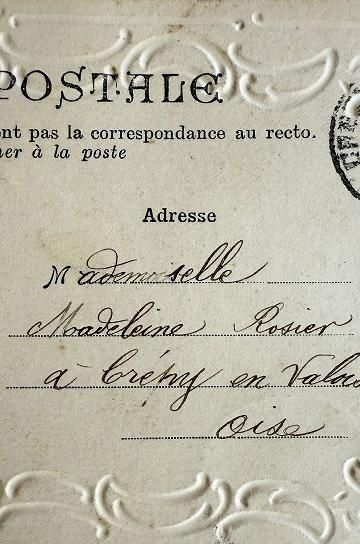 POSTALE
ent pas la correspondance au recto.
ner à la poste
Adresse
Mademoiselle
Madeleine Rosier
à Crépy en Valois
Oise